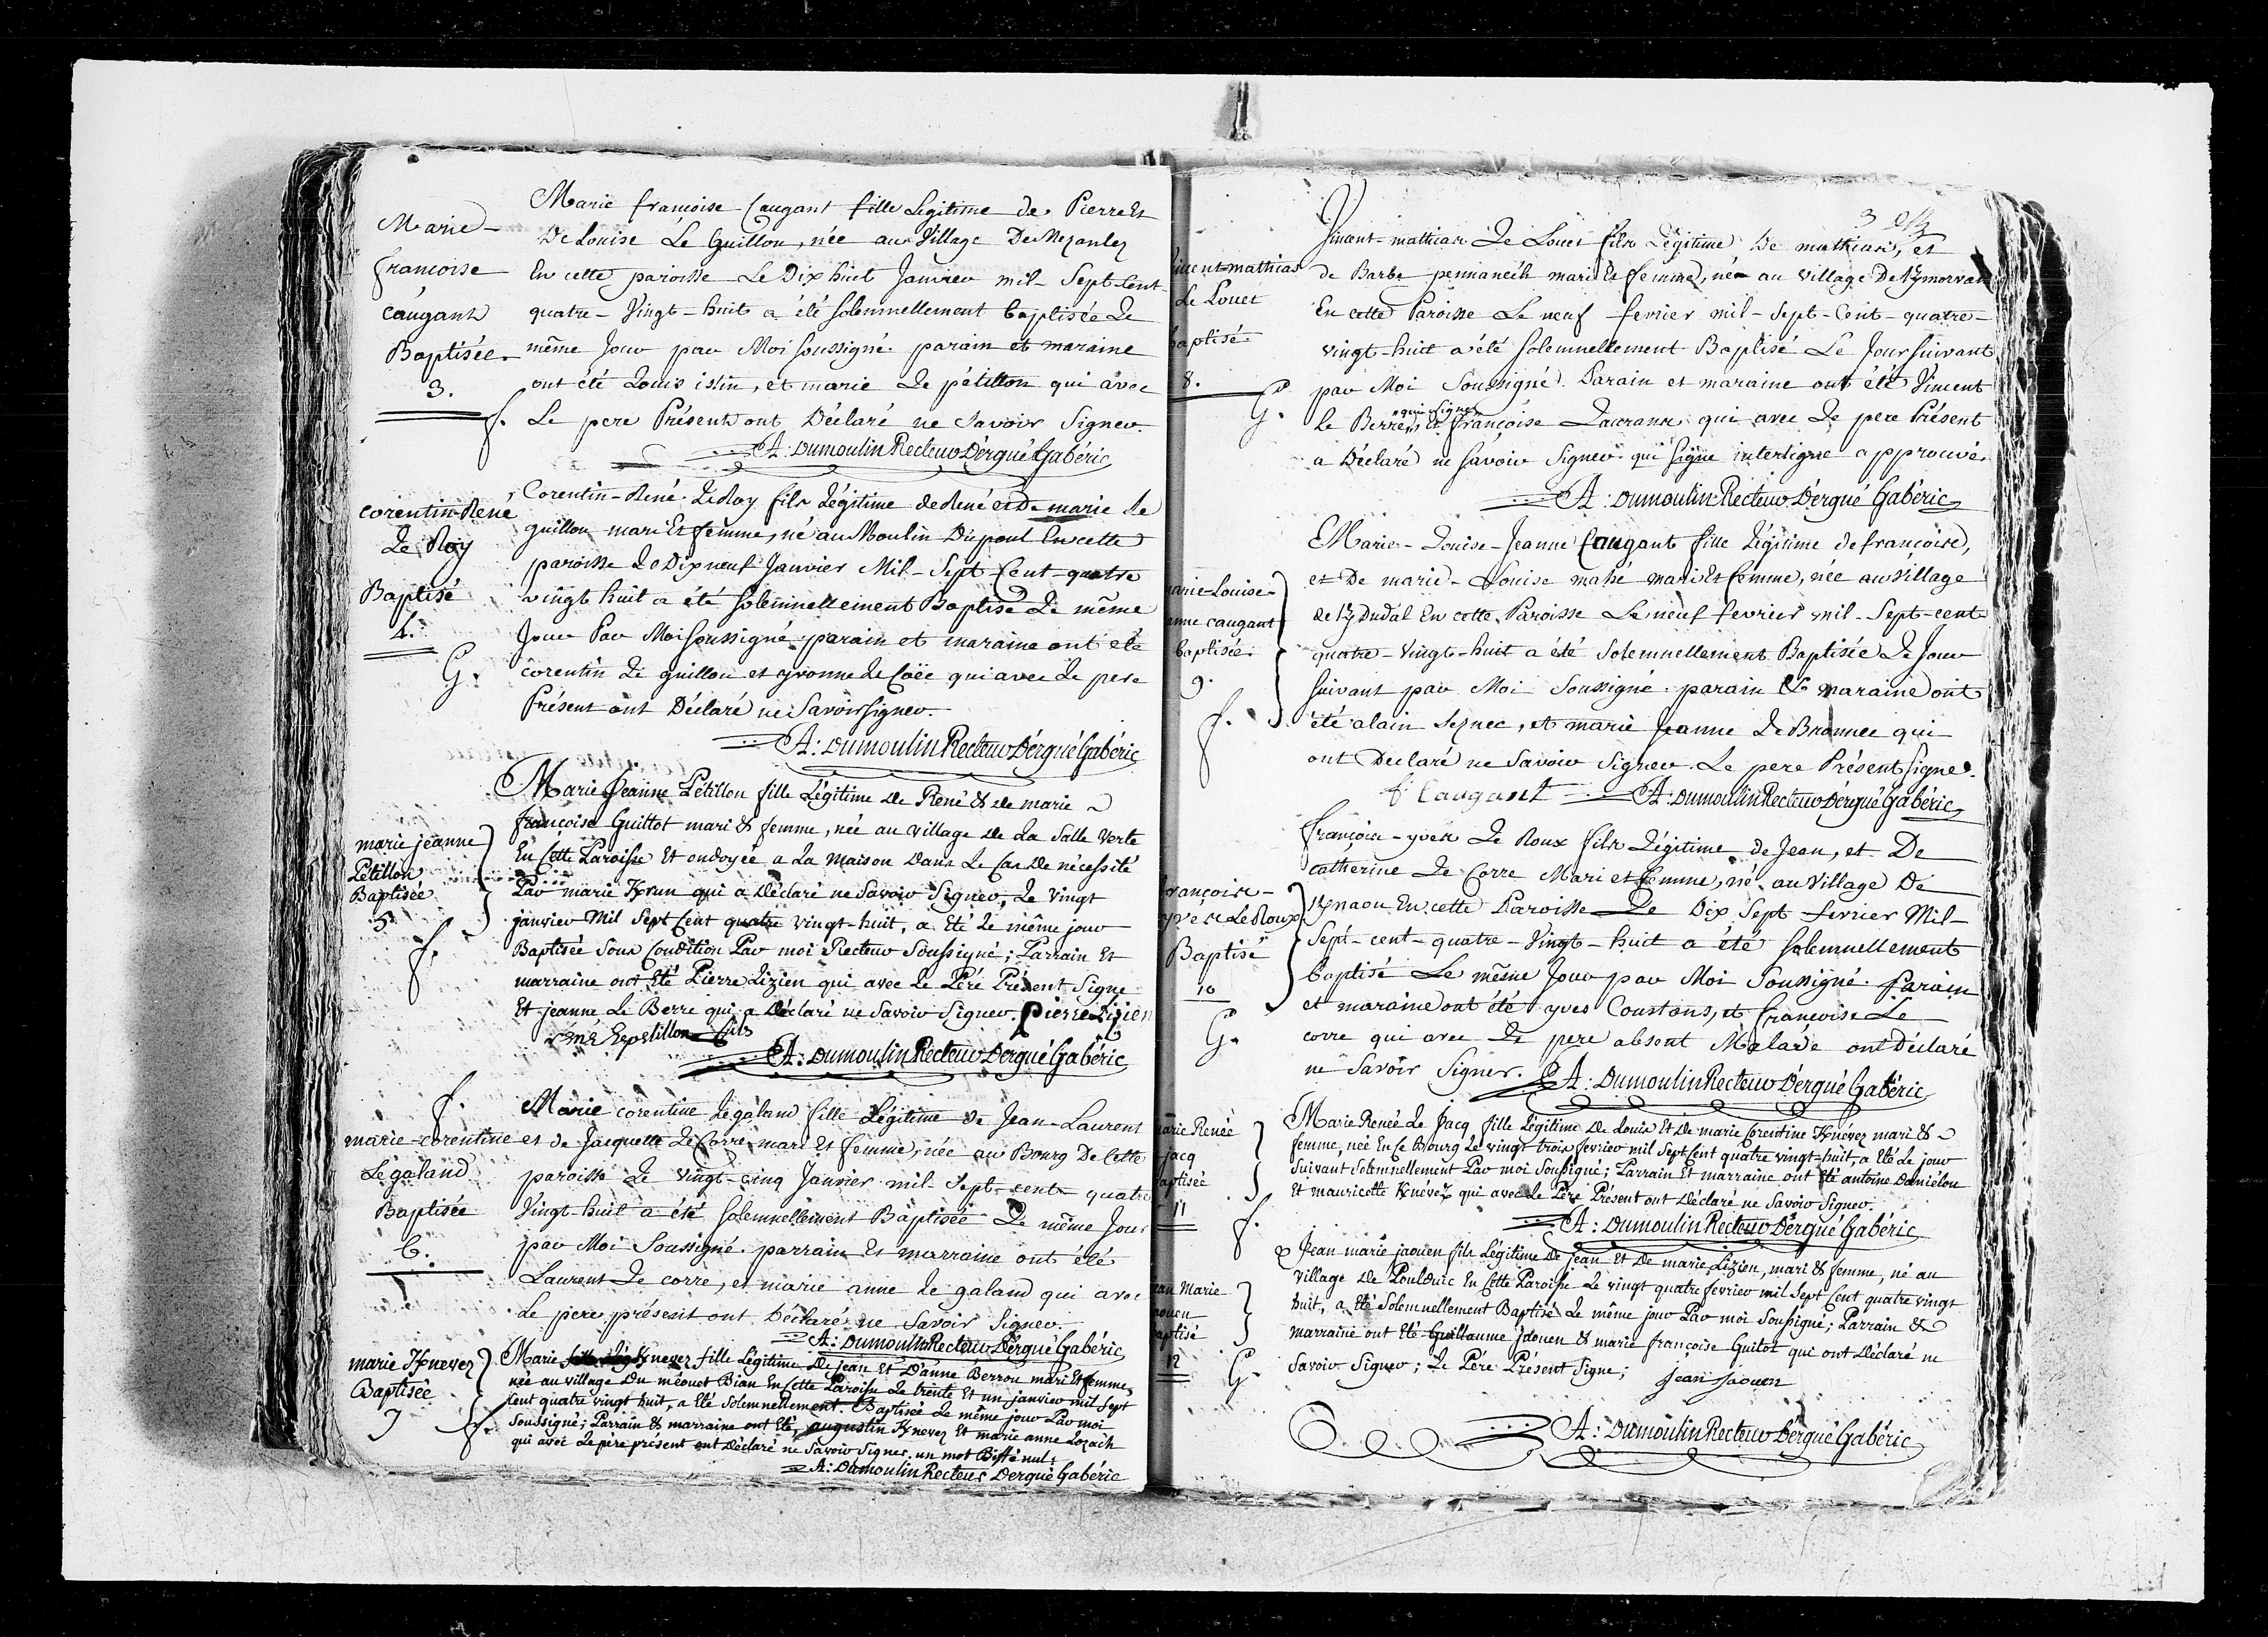 Marie
françoise
caugant
Baptisée
3.
f.
Marie françoise Caugant fille Legitime de Pierre Et
De Louise Le Guillou, née au Village De Mezanlez
En cette paroisse Le Dix huit Janvier mil-Sept-Cent-
quatre-Vingt-huit a été solemnellement baptisée Le
même Jour par Moi soussigné. parain et maraine
ont été Louis istin, et marie Le pétillon qui avec
Le pere Présent ont Déclaré ne Savoir Signer.
A: Dumoulin Recteur D'ergué Gabéric
corentin-René
Le Roy
Baptisé
4.
G.
Corentin-René Le Roy fils Légitime de René et De marie Le
guillou mari Et femme, né au Moulin Du pont En cette
paroisse Le Dix neuf Janvier Mil-Sept Cent-quatre
vingt huit a été solemnellement Baptisé Le même
Jour Par Moi soussigné. parain et maraine ont été
corentin Le guillou et yvonne Le Coëc qui avec Le pere
Présent ont Déclaré ne Savoir signer.
A: Dumoulin Recteur D'ergué Gabéric
marie jeanne
Pétillon
Baptisée
5
f.
Marie Jeanne Pétillon fille Légitime de René & de marie
françoise Guittot mari & femme, née au village de La Salle verte
En Cette Paroisse Et ondoyée a La maison Dans Le Cas De nécessité
Par marie Krun qui a Déclaré ne Savoir Signer, Le vingt
janvier Mil Sept Cent quatre vingt-huit, a Eté Le même jour
Baptisée Sous Condition Par moi Recteur Soussigné; Parrain Et
marraine ont Eté Pierre Lizien qui avec Le Péré Présent Signe
Et jeanne Le Berre qui a Déclaré ne Savoir Signer. pierre Lizien
réné Lepetillon fils
A: Dumoulin Recteur Dergué Gabéric
f.
marie-corentine
Le galand
Baptisée
6.
Marie corentine Le galand fille Légitime de Jean-Laurent
et de Jacquette Le Corre mari Et femme, née au Bourg De Cette
paroisse Le vingt-cinq Janvier mil-Sept-cent-quatre
Vingt huit a été solemnellement Baptisée Le même Jour
par Moi Soussigné. parrain Et marraine ont été
Laurent Le corre, et marie anne Le galand qui avec
Le pere présent ont Déclaré ne Savoir Signer.
A: Dumoulin Recteur Dergué Gabéric
marie Knevez
Baptisée
7
f.
Marie Knevez fille Légitime De jean Et D'anne Berrou mari Et femme,
née au village Du méouet Bian En Cette Paroisse Le trente Et un janvier mil Sept
Cent quatre vingt huit, a Eté Solemnellement Baptisée Le même jour Par moi
Soussigné; Parrain & marraine ont Eté, augustin Knevez Et marie anne Lozach
qui avec Le père présent ont Déclaré ne Savoir Signer. un mot Biffé nul;
A: Dumoulin Recteur Dergué Gabéric
3
incent-mathias
Le Louet
aptisé
8.
G.
Vincent-mathias Le Louet fils Légitime De mathias, et
de Barbe pennanéch mari Et femme, né au village De Kymorvan
En cette Paroisse Le neuf fevrier mil-Sept-Cent-quatre-
vingt-huit a été solemnellement Baptisé Le Jour suivant
par Moi Soussigné. Parain et maraine ont été Vincent
qui signe
le Berre, et françoise Lacrann qui avec Le pere Présent
a Déclaré ne savoir Signer. qui signe interligne approuvé.
A: Dumoulin Recteur D'ergué Gabéric
arie-Louise-
anne caugant
baptisée
9.
f.
Marie-Louise-Jeanne Caugant fille Légitime de françoise,
et De marie-Louise mahé mari Et femme, née au Village
de Ky Dudal En cette Paroisse Le neuf fevrier mil-Sept-cent-
quatre-Vingt-huit a été Solemnellement Baptisée Le Jour
suivant par Moi Soussigné. parain Et maraine ont
été alain Seznec, et marie Jeanne Le Brannec qui
ont Declaré ne Savoir Signer. Le pere Présent signe.
f Caugant A: Dumoulin Recteur D'ergué Gabéric
rançois-
yves Le Roux
Baptisé
10
G.
françois-yves Le Roux fils Légitime de Jean, et De
catherine Le Corre Mari et femme, né au Village De
Kynaou En cette Paroisse Le Dix Sept fevrier Mil-
Sept-cent-quatre-Vingt-huit a été solemnellement
baptisé Le même Jour par Moi Soussigné. Parain
et maraine ont été yves Coustans, et françoise Le
corre qui avec Le pere absent Malade ont Déclaré
ne Savoir Signer. A: Dumoulin Recteur D'ergué Gabéric
arie Renée
jacq
aptisée
11
f.
Marie Renée Le Jacq fille Légitime De Louis Et De marie Corentine Knévez mari &
femme, née En Ce Bourg Le vingt trois fevrier mil Sept Cent quatre vingt-huit, a Eté Le jour
Suivant Solemnellement Par moi Soussigné; Parrain Et marraine ont Eté antoine Daniélou
Et mauricette Knévez qui avec Le Père Présent ont Déclaré ne Savoir Signer.
A: Dumoulin Recteur Dergué Gabéric
ean Marie
aouen
aptisé
12
G.
Jean marie jaouen fils Légitime De jean Et De marie Lizien, mari & femme, né au
village De Poulduic En Cette Paroisse Le vingt quatre fevrier mil Sept Cent quatre vingt
huit, a Eté Solemnellement Baptisé Le même jour Par moi Soussigné; Parrain &
marraine ont Eté Guillaume jaouen & marie françoise Guitot qui ont Déclaré ne
Savoir Signer; Le Pére Présent Signe; jean jaouen
A: Dumoulin Recteur Dergué Gabéric